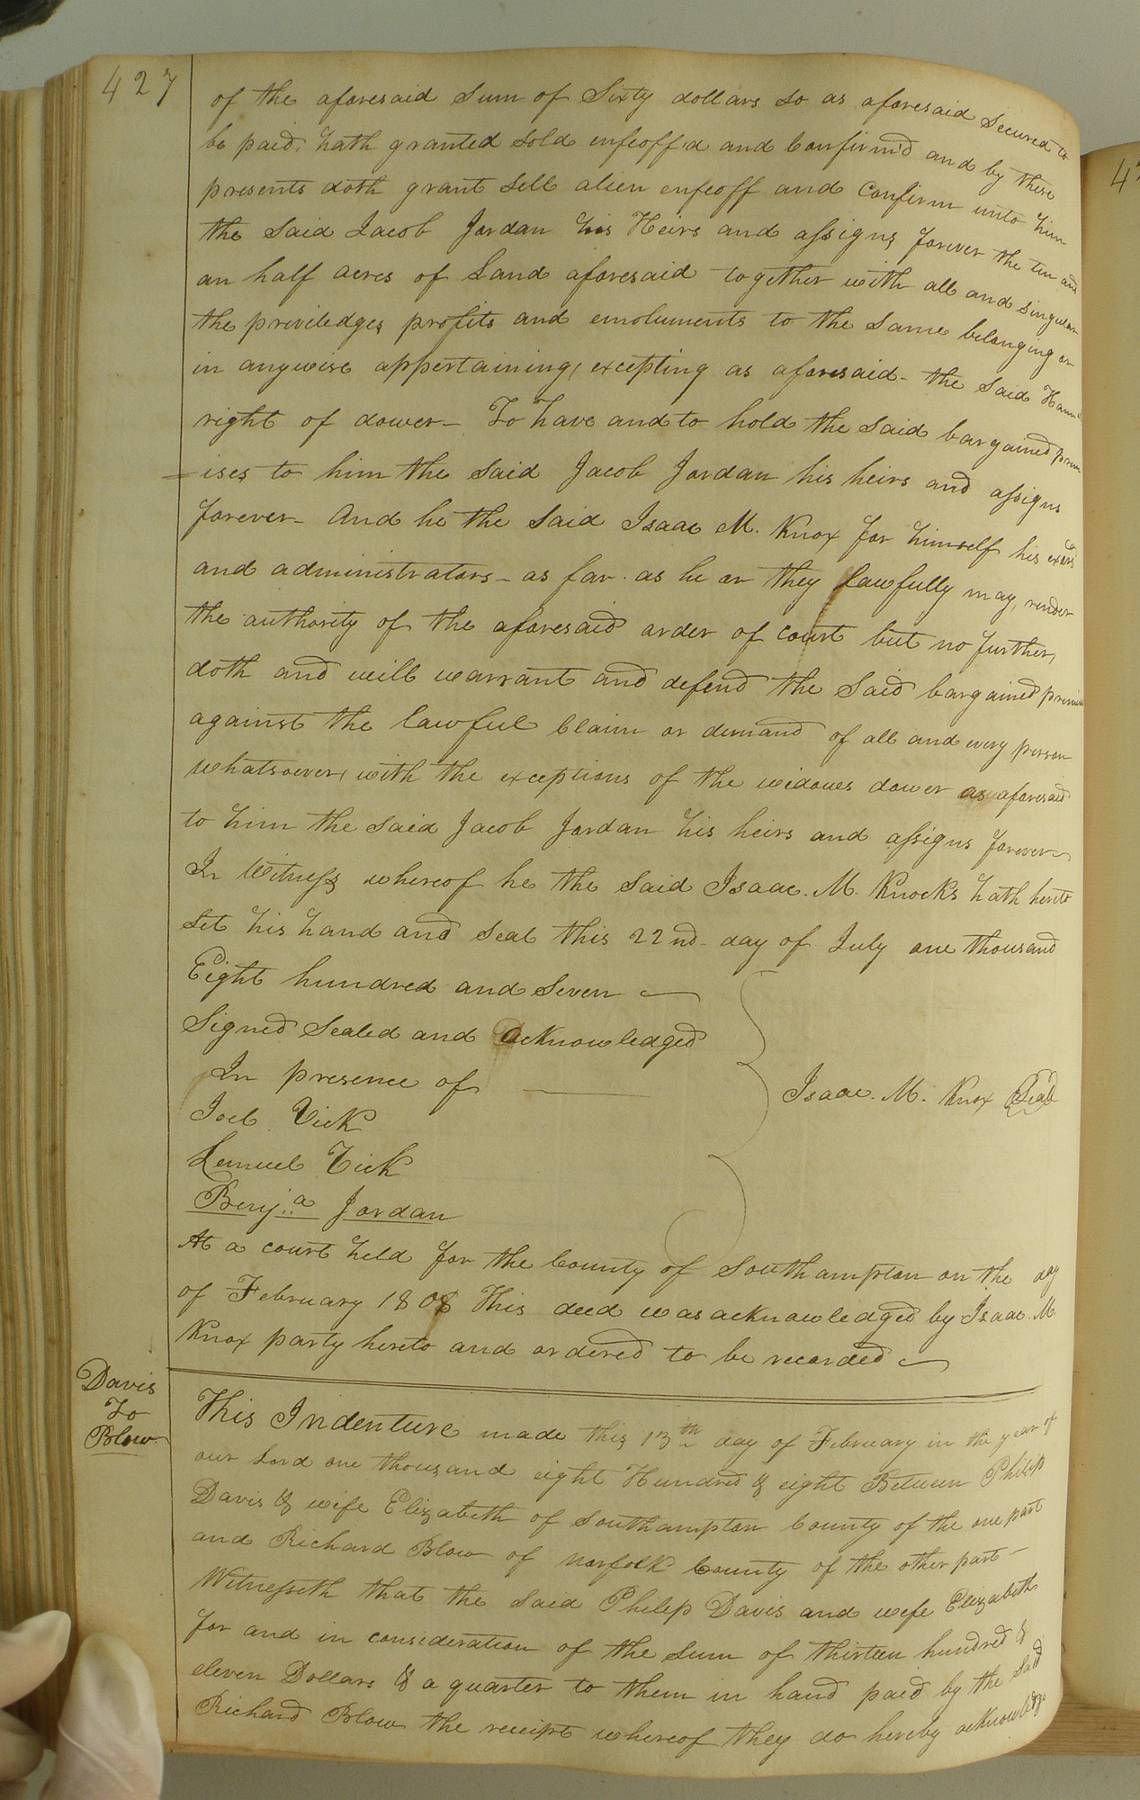 427
of the aforesaid Sum of Sixty dollars so as aforesaid Secured to
be paid, hath granted sold enfeoff'd and Confirm'd and by these
presents doth grant Sell alien enfeoff and Confirm unto him
the Said Jacob Jordan his Heirs and assigns forever the ten and
an half acres of Land aforesaid together with all and Singular
the priviledges profits and emoluments to the Same belonging or
in anywise appertaining, excepting as aforesaid - the Said
right of dower - To have and to hold the Said bargained prem
=ises to him the Said Jacob Jordan his heirs and assigns
forever - And he the Said Isaac M. Knox for himself his
and administrators - as far as he or they Lawfully may, under
the authority of the aforesaid order of court but no further,
doth and will warrant and defend the Said bargained
against the lawful Claim or demand of all and every person
whatsoever, with the exceptions of the widows dower as aforesaid
to him the Said Jacob Jordan his heirs and assigns forever
In Witness whereof he the Said Isaac. M. Knocks hath hereto
Set his hand and Seal this 22nd day of July one thousand
Eight hundred and Seven
Signed Sealed and acknowledged
In presence of
Isaac. M. Knox Seal
Joel Vick
Lemuel Vick
Benj.a Jordan
At a court held for the County of Southampton on the day
of February 1808 This deed was acknowledged by Isaac M
Knox party hereto and ordered to be recorded
Davis
To
Blow
This Indenture made this 13th day of February in the year of
our Lord one thousand eight Hundred & eight Between Philip
Davis & wife Elizabeth of Southampton County of the one part
and Richard Blow of Norfolk County of the other part -
Witnesseth that the Said Philip Davis and wife Elizabeth
for and in consideration of the Sum of thirteen hundred &
eleven Dollars & a quarter to them in hand paid by the Said
Richard Blow the receipt whereof they do hereby